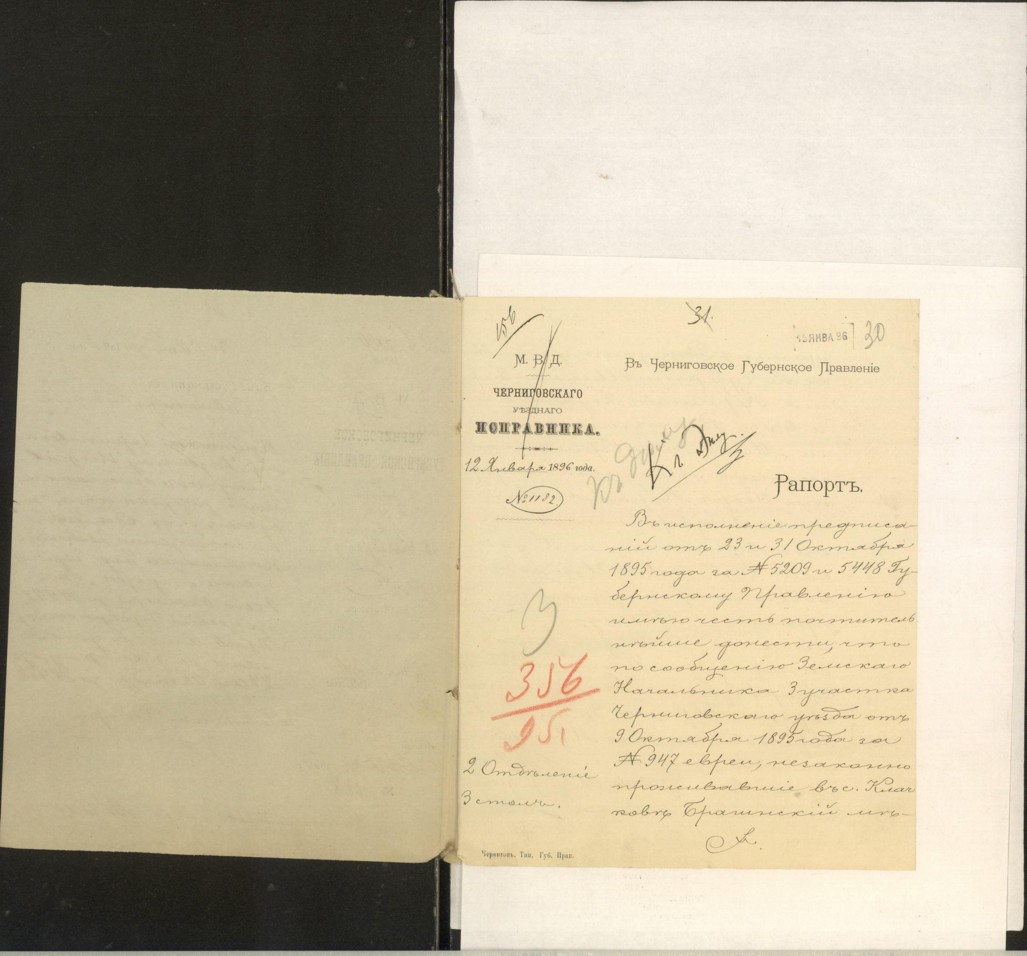 156
31.
15 ЯНВА 96
30
М. В. Д.
ЧЕРНИГОВСКАГО
УѢЗДНАГО
ИСПРАВНИКА.
12 Января 1896 года.
№ 1182
Въ Черниговское Губернское Правленіе
къ дѣлу
Рапортъ.
Въ исполненіе предписа-
ній отъ 23 и 31 Октября
1895 года за № 5209 и 5448 Гу-
бернскому Правленію
имѣю честь почтитель
нѣйше донести, что
по сообщенію Земскаго
Начальника 3 участка
Черниговскаго уѣзда отъ
9 Октября 1895 года за
№ 947 евреи, незаконно
проживавшіе въ с. Клач
ковѣ Брагинскій мѣ-
3
356
95
2 Отдѣленіе
3 столъ.
Черниговъ. Тип. Губ. Прав.